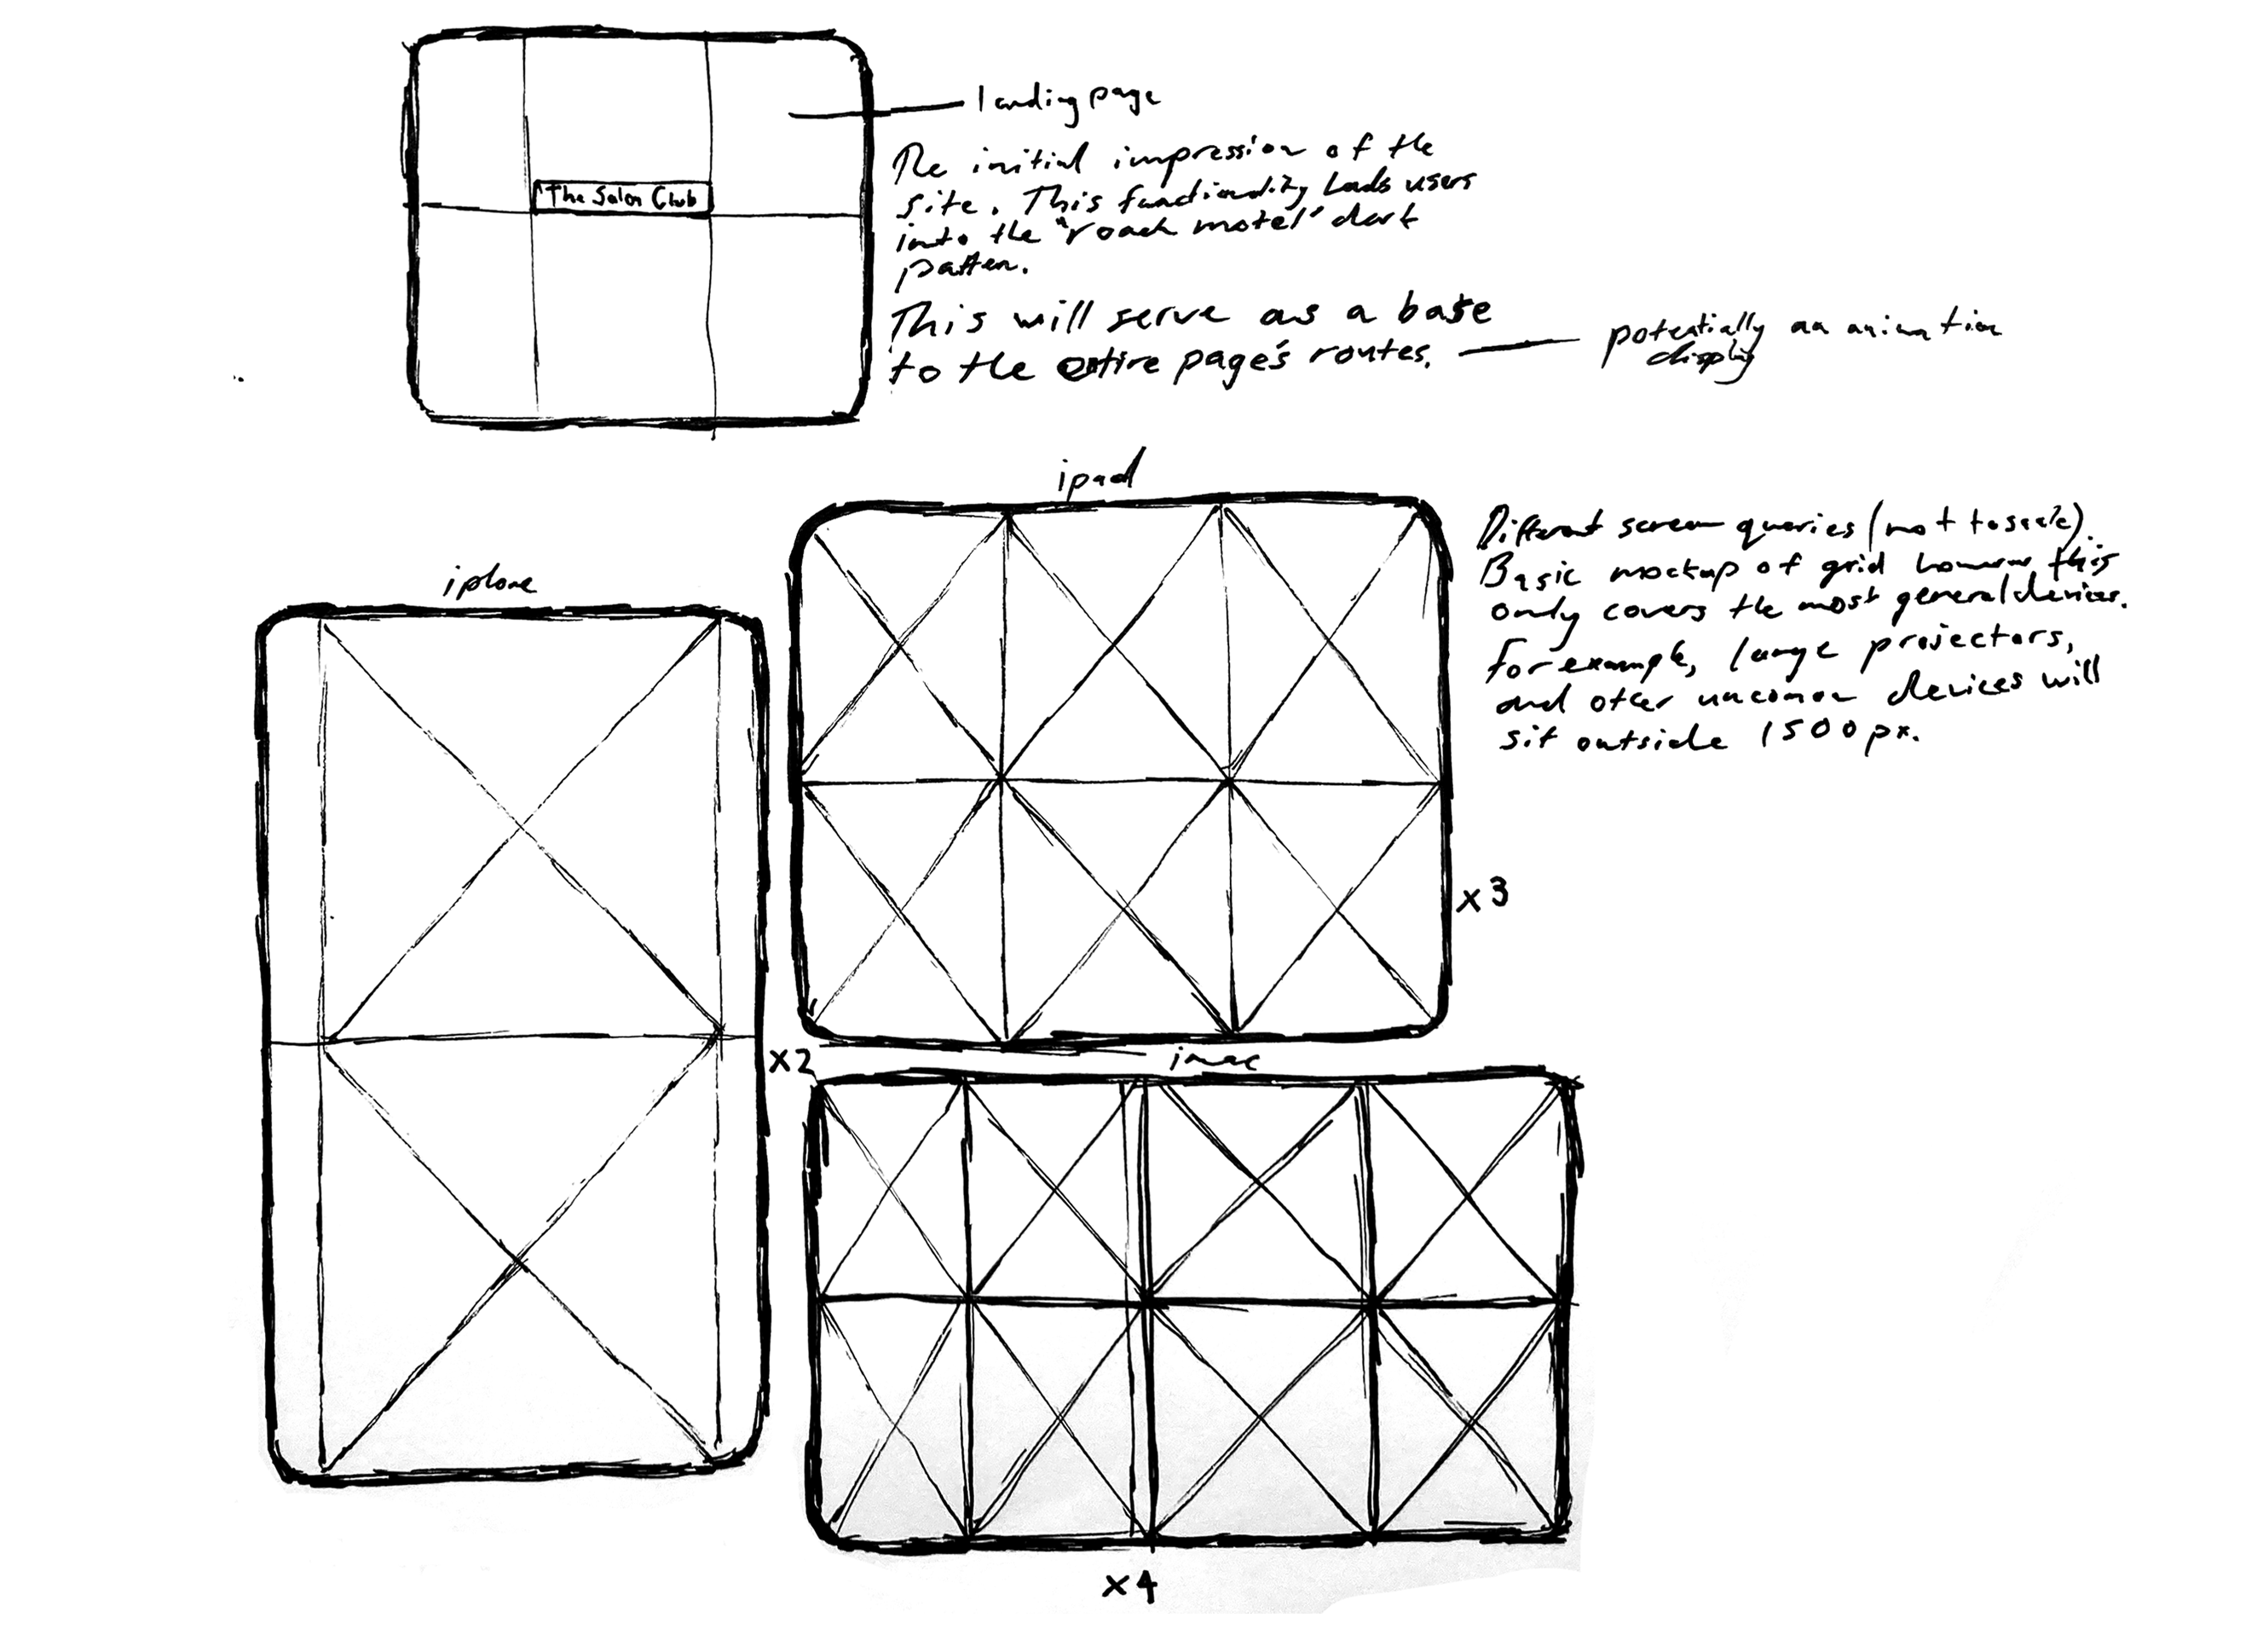 landing page
The initial impression of the
site. This functionality leads users
into the "roach motel" dark
pattern.
The Salon Club
This will serve as a base
to the entire page's routes.
potentially an animation
display
ipad
Different screen queries (not to scale).
Basic mockup of grid however this
only covers the most general devices.
For example, large projectors,
and other uncommon devices will
sit outside 1500px.
iphone
x3
x2
imac
x4